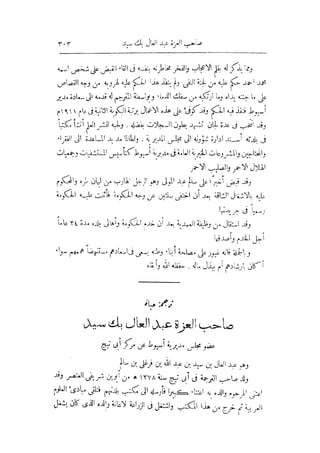 صاحب العزة عبد العال بك سيد ٣٠٣
ومما يذكر له بقلم الاعجاب والفخر مخاطرته بنفسه فى القاء القبض على شخص اسمه
محمد احمد حكم عليه من لجنة النفى ولم ينفذ هذا الحكم عليه لهروبه من وجه القصاص
على ما جنته يداه وما ارتكبه من سفك الدماء وبواسطة المترجم له قدمه الى سعادة مدير
أسيوط فنفذ فيه الحكم وقد كوفئ على هذه الاعمال برتبة الثانية فى عام ١٩١١م
وقد انتخب فى عدة لجان تشهد بطون السجلات بفضله. ولحبه لنشر العلم أنشأ مكتباً
فى بلدته أسند ادارة شؤونه الى مجلس المديرية. ولطالما مد يد المساعدة الى الفقراء
والمحتاجين والمشروعات الخيرية العامة فى مديرية أسيوط كتأسيس المستشفيات وجمعيات
الهلال الاحمر والصليب الاحمر
وقد قبض أخيراً على سالم عبد المولى وهو الرجل الهارب من ليمان طره والمحكوم
عليه بالاشغال الشاقة بعد أن اختفى سنتين عن وجه الحكومة فأثنت عليه الحكومة
رسمياً فى جريدتها
وقد استقال من وظيفة العمدية بعد أن خدم الحكومة وأهالى بلده مدة ٢٤ عاماً
أجل الخدم وأصدقها
وبالجملة فانه غيور على مصلحة أبناء وطنه يسعى فى اسعادهم مستنهضاً هممهم سواء
أكان بارشادهم أم ببذل ماله. حفظه الله وأبقاه
ترجمة حياة
صاحب العزة عبد العال بك سيد
عضو مجلس مديرية أسيوط عن مركز أبى تيج
وهو عبد العال بن سيد بن عبد الله بن فرغلى بن سالم
ولد صاحب الترجمة فى أبى تيج سنة ١٢٧٨ ه من أبوين شريفى العنصر وقد
اعتنى المرحوم والده به اعتناء كبيرا فأرسله الى مكتب بلدتهم فتلقى مبادئ العلوم
العربية ثم خرج من هذا المكتب واشتغل فى الزراعة لاعانة والده الذى كان يشغل